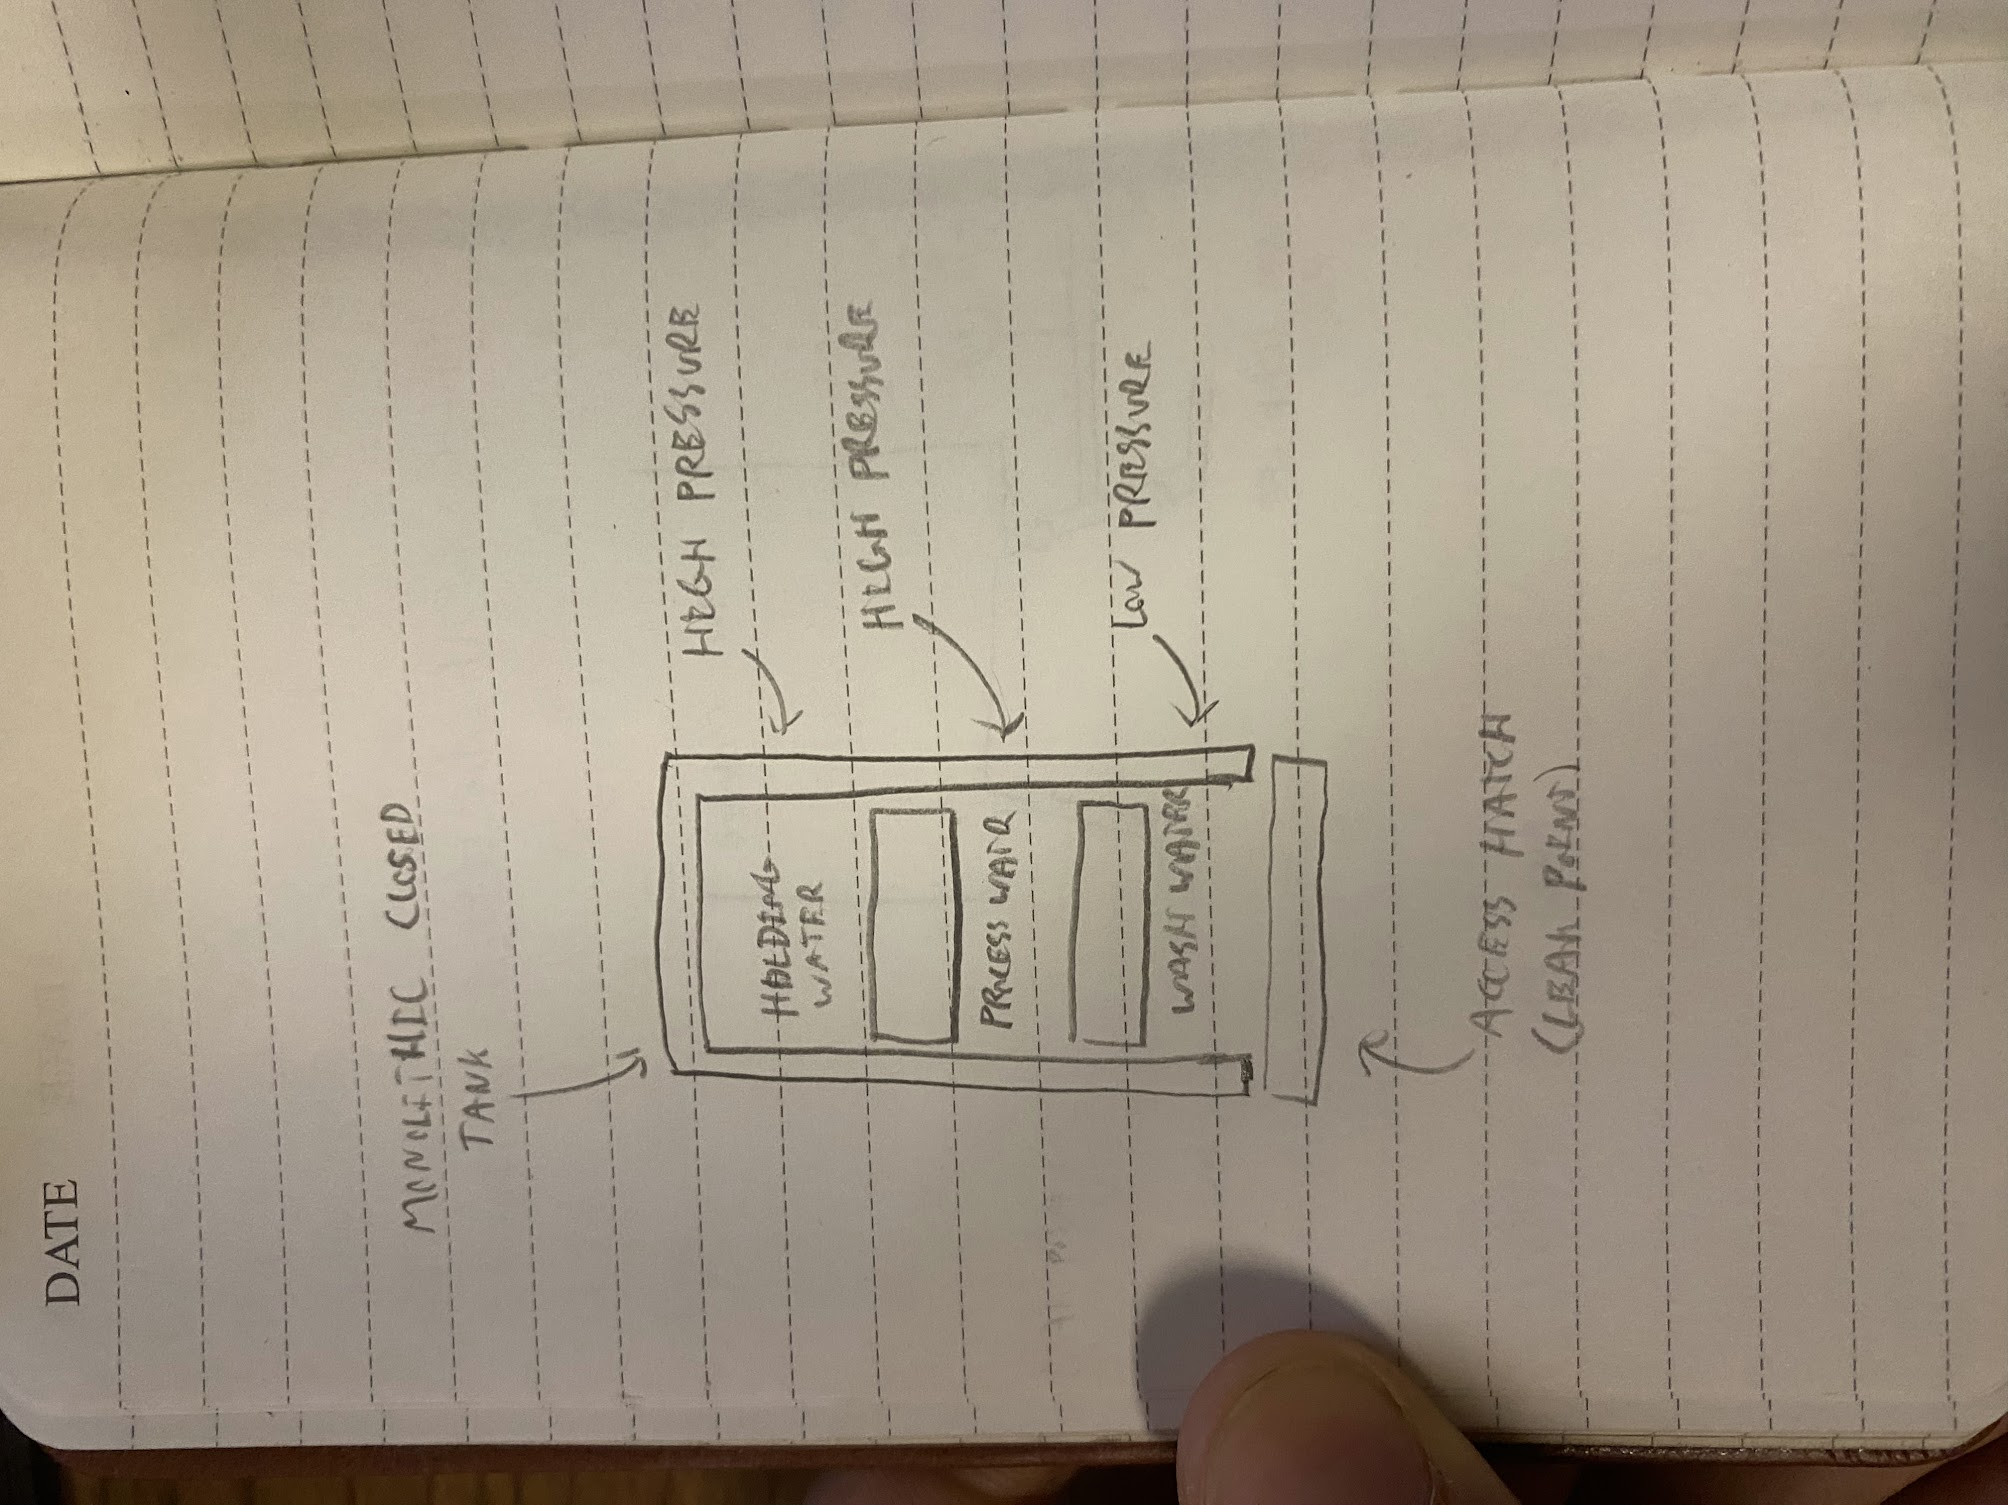 DATE
MONOLITHIC CLOSED
TANK
HIGH PRESSURE
HIGH PRESSURE
LOW PRESSURE
HOLDING
WATER
PROCESS WATR
WASH WATER
ACCESS HATCH
(LEAK POINT)